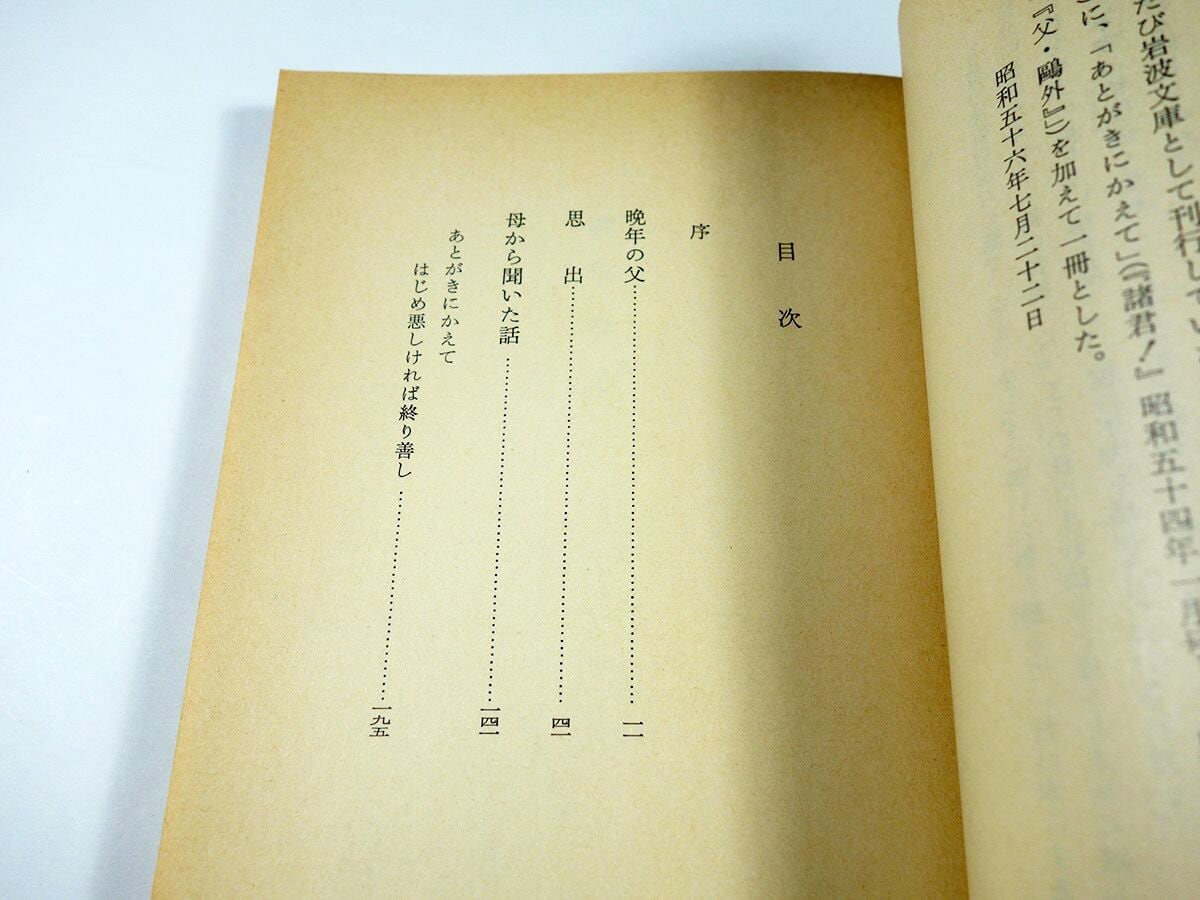 たび岩波文庫として刊行してい
に、「あとがきにかえて」(『諸君！』昭和五十四年一月号
『父・鷗外』)を加えて一冊とした。
昭和五十六年七月二十二日
目次
序
晩年の父……一一
思出……四一
母から聞いた話……一四一
あとがきにかえて
はじめ悪しければ終り善し……一九五